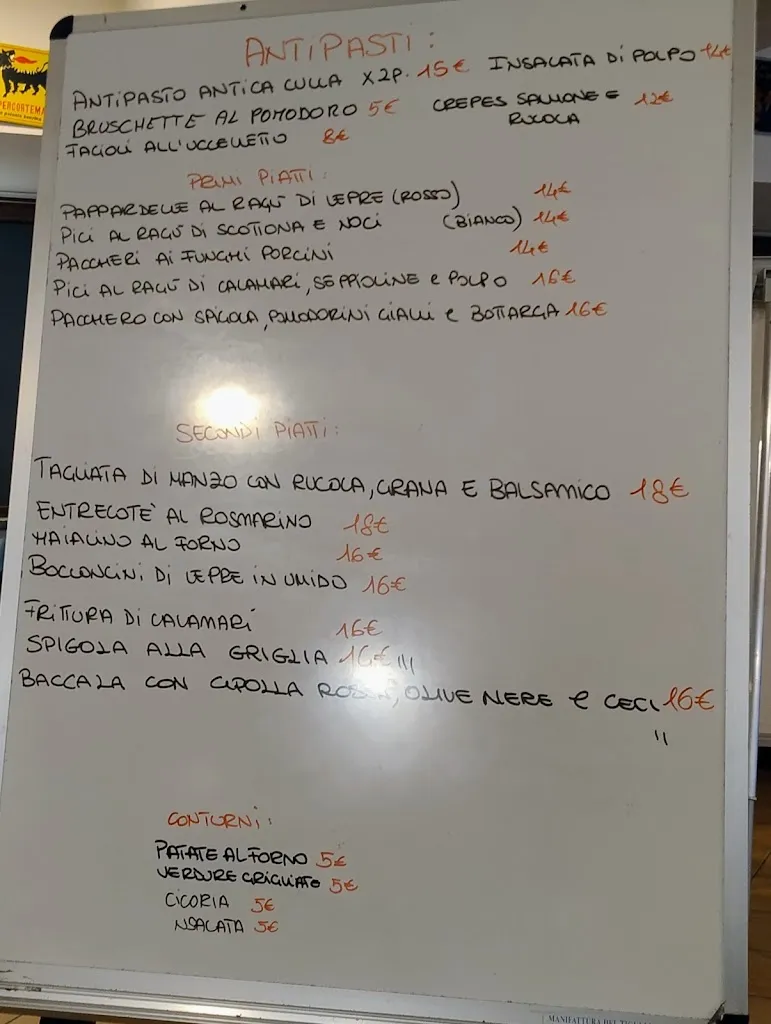 ANTIPASTI:
ANTIPASTO ANTICA CULLA X2P. 15€ INSALATA DI POLPO 14€
BRUSCHETTE AL POMODORO 5€ CREPES SALMONE E 12€
RUCOLA
FAGIOLI ALL'UCCELLETTO 8€
PRIMI PIATTI:
PAPPARDELLE AL RAGÙ DI LEPRE (ROSSO) 14€
PICI AL RAGÙ DI SCOTTONA E NOCI (BIANCO) 14€
PACCHERI AI FUNGHI PORCINI 14€
PICI AL RAGÙ DI CALAMARI, SEPPIOLINE e POLPO 16€
PACCHERO CON SPIGOLA, POMODORINI GIALLI e BOTTARGA 16€
SECONDI PIATTI:
TAGLIATA DI MANZO CON RUCOLA, GRANA E BALSAMICO 18€
ENTRECOTE AL ROSMARINO 18€
MAIALINO AL FORNO 16€
BOCCONCINI DI LEPRE IN UMIDO 16€
FRITTURA DI CALAMARI 16€
SPIGOLA ALLA GRIGLIA 16€ |||
BACCALA CON CIPOLLA ROSSA, OLIVE NERE e CECI 16€
||
CONTORNI:
PATATE AL FORNO 5€
VERDURE GRIGLIATE 5€
CICORIA 5€
INSALATA 5€